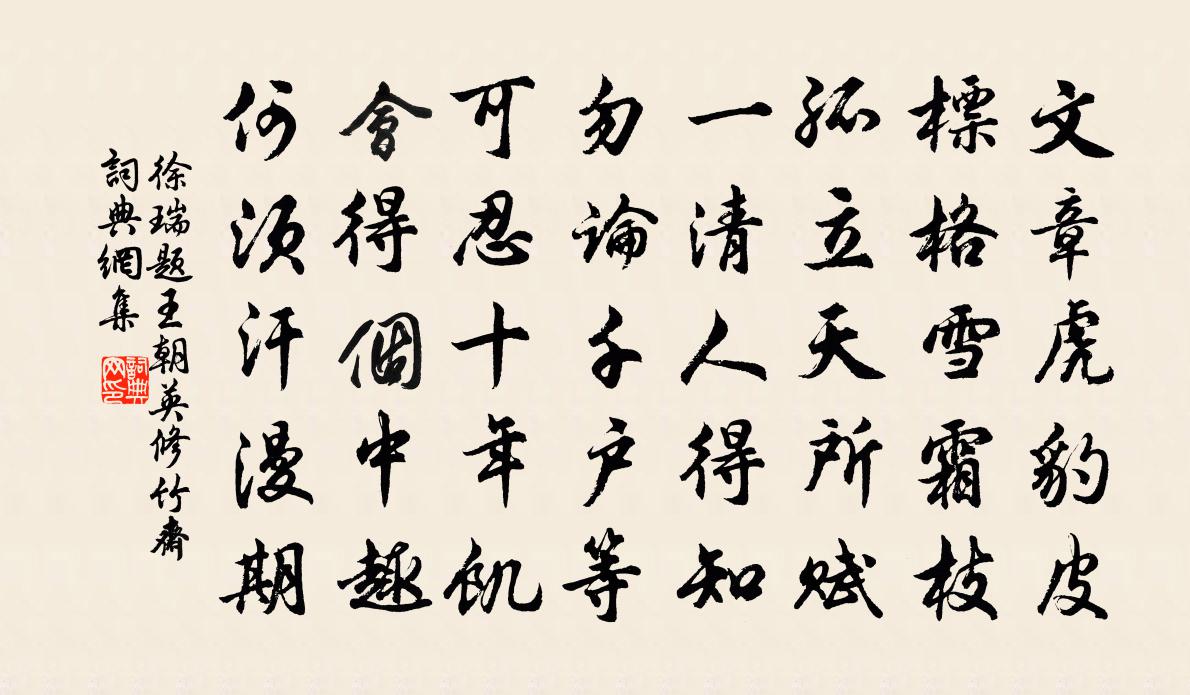 文章虎豹皮
標格雪霜枝
孤立天所赋
一清人得知
勿論千户等
可忍十年飢
會得個中趣
何須汗漫期
徐瑞題王朝英修竹齋
詞典網集
詞典网印